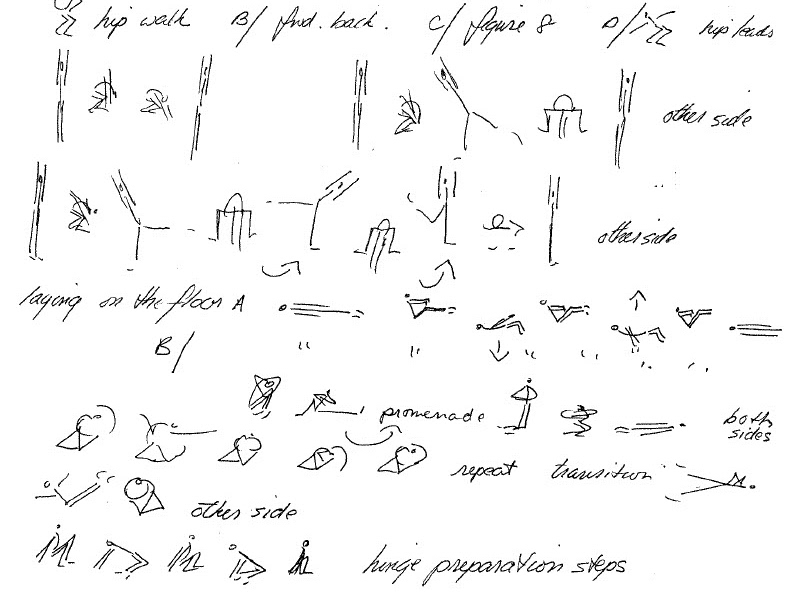 hip walk B/ fwd. back. C/ figure 8 D/ hip leads
other side
other side
laying on the floor A
B/ " " " " " "
promenade both sides
repeat transition
other side
hinge preparation steps